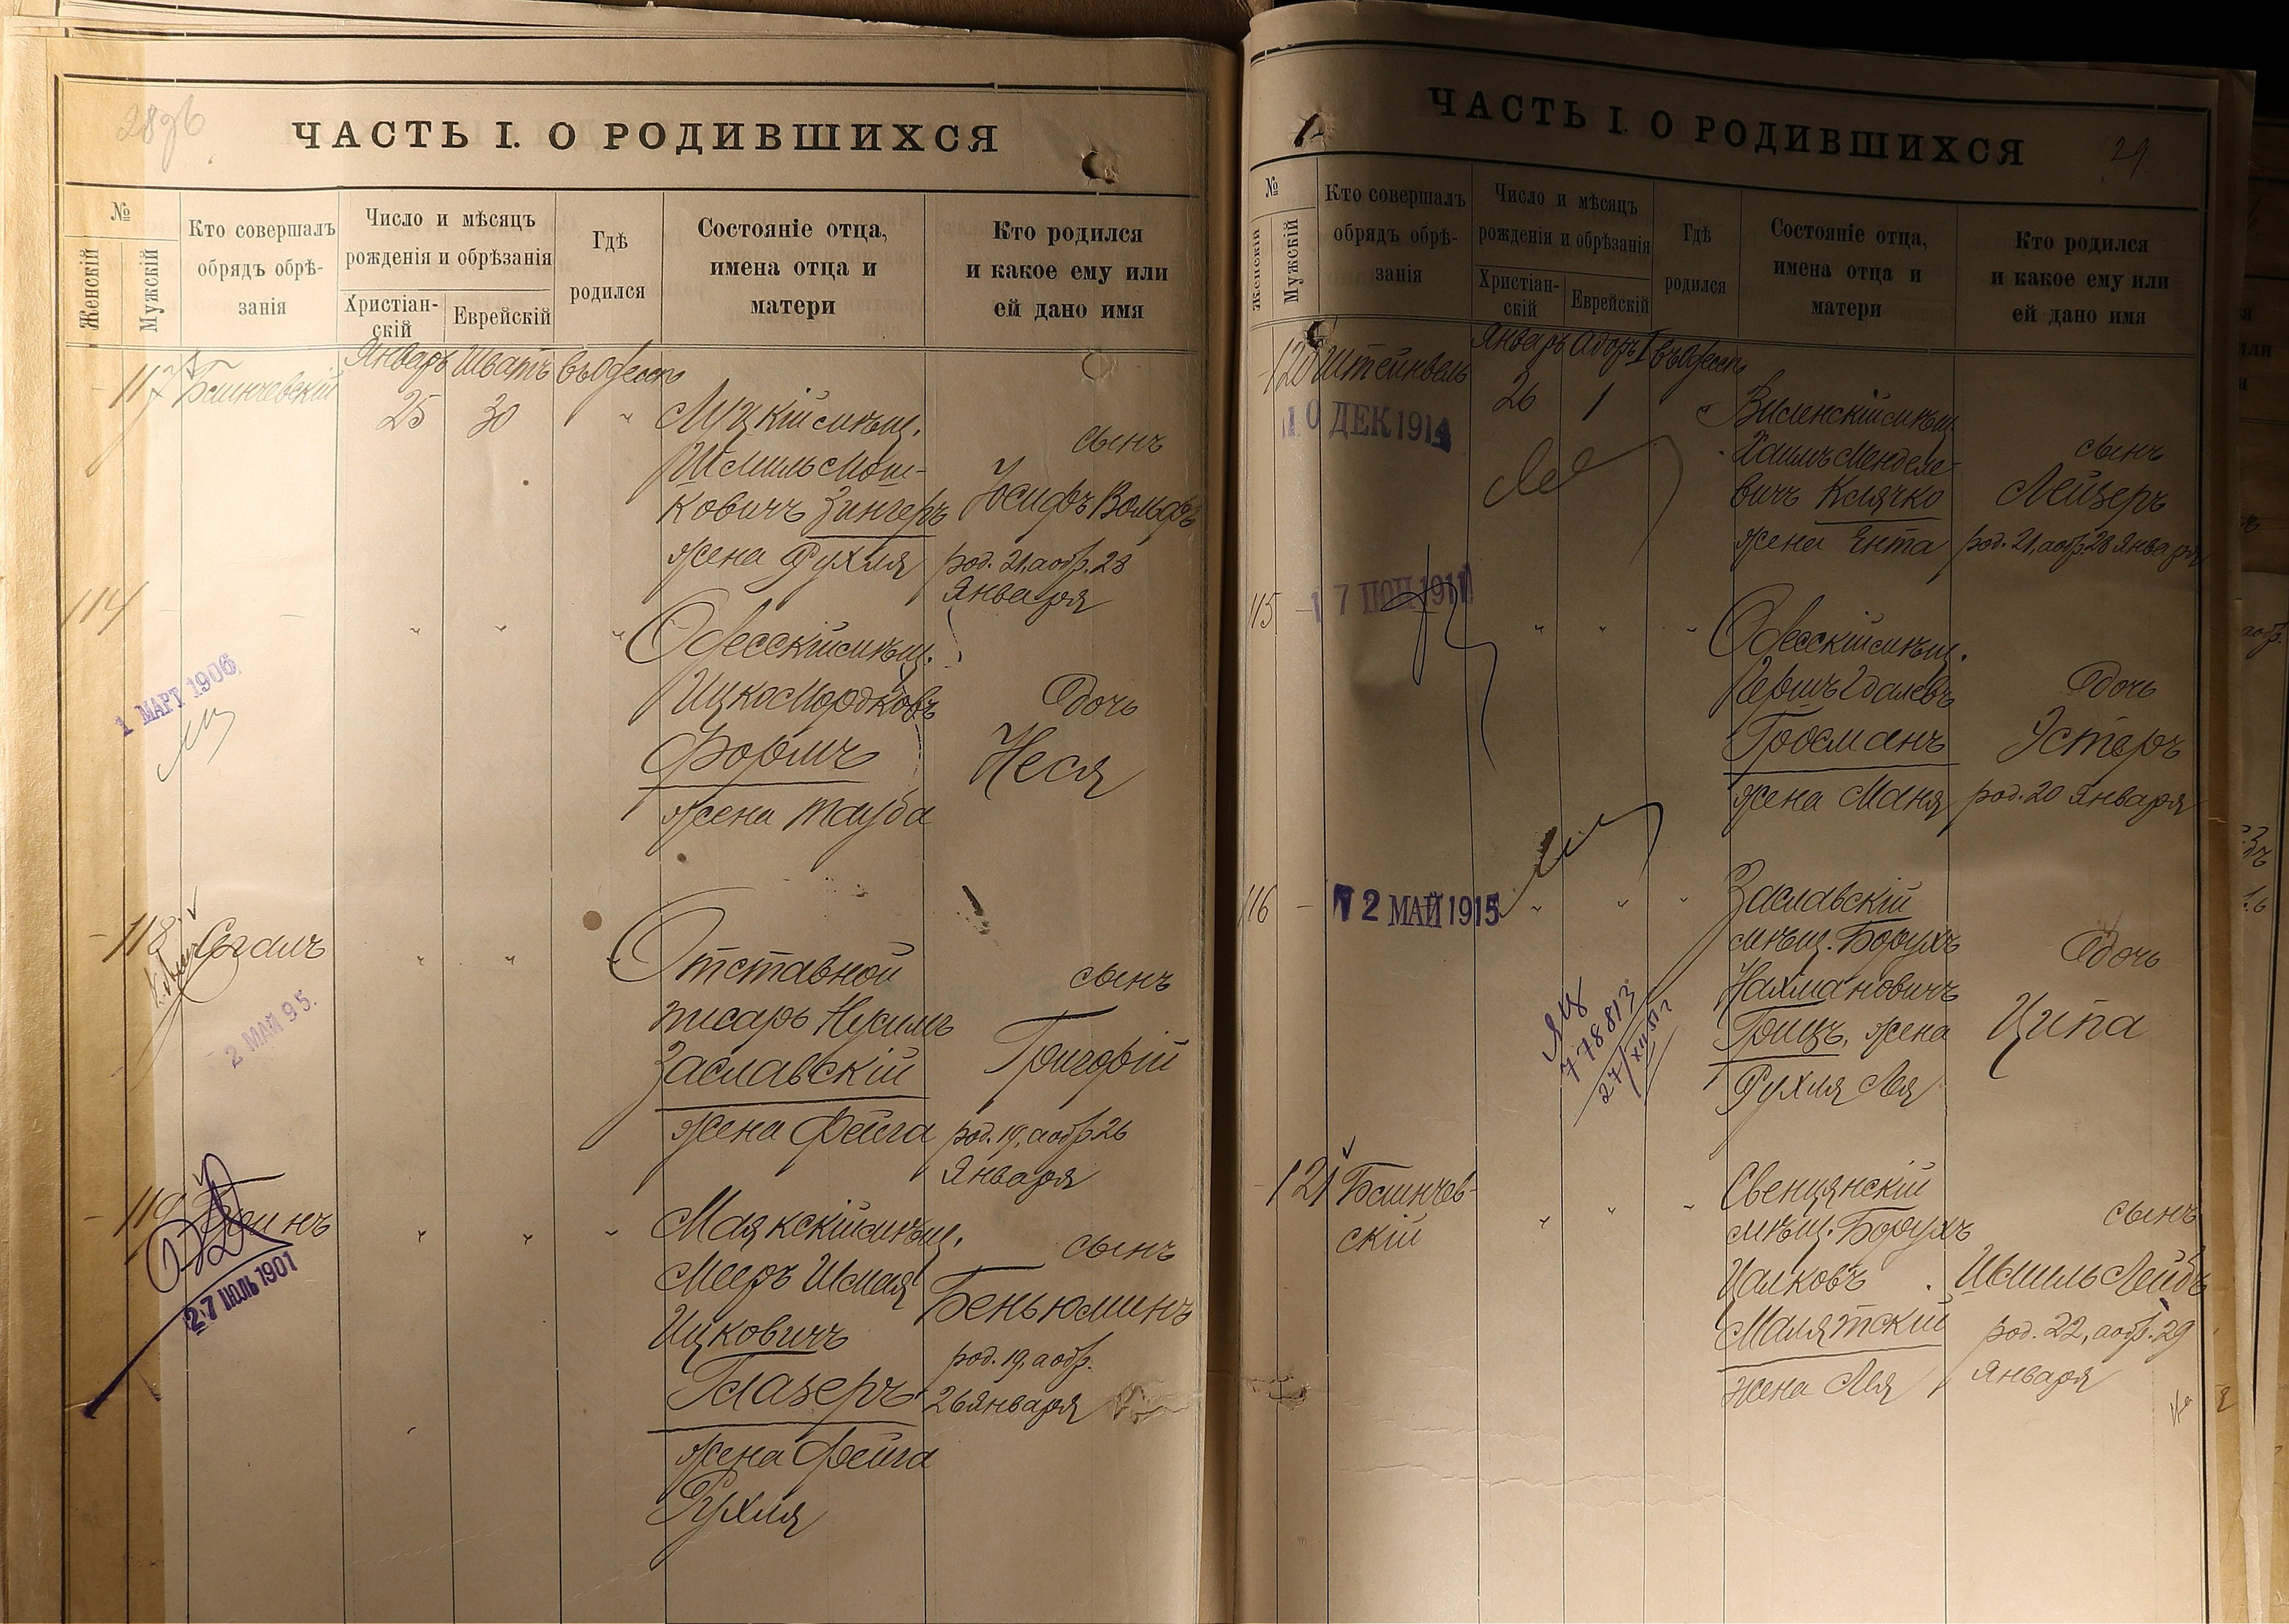 28об
ЧАСТЬ I. О РОДИВШИХСЯ
№
Женскій
Мужскій
Кто совершалъ
обрядъ обрѣ-
занія
Число и мѣсяцъ
рожденія и обрѣзанія
Христіан-
скій
Еврейскій
Гдѣ
родился
Состояніе отца,
имена отца и
матери
Кто родился
и какое ему или
ей дано имя
Январь Шватъ въ Одессѣ
117 Блинчевскій
25 30 " Луцкій мѣщ.
Шмиль Мош-
ковичъ Зингеръ
жена Рухля
сынъ
Іосифъ Вольфъ
род. 21, а обр. 28
Января
114 - - " " " Одесскій мѣщ.
Ицко Мордковъ
Форшъ
жена Тауба
дочь
Неся
1 МАРТ 1906
118 Сегалъ " " " Отставной
писарь Нусимъ
Заславскій
жена Фейга
сынъ
Григорій
род. 19, а обр. 26
Января
2 МАЙ 95.
119 " " " Маякскій мѣщ.
Мееръ Шмая
Ицковичъ
Глазеръ
жена Фейга
Рухля
сынъ
Беньюминъ
род. 19, а обр.
26 Января
27 ІЮЛЬ 1901
29
ЧАСТЬ I. О РОДИВШИХСЯ
№
Женскій
Мужскій
Кто совершалъ
обрядъ обрѣ-
занія
Число и мѣсяцъ
рожденія и обрѣзанія
Христіан-
скій
Еврейскій
Гдѣ
родился
Состояніе отца,
имена отца и
матери
Кто родился
и какое ему или
ей дано имя
Январь Адоръ I въ Одессѣ
120 Штейнвель
26 1 " Виленскій мѣщ.
Хаимъ Менделе-
вичъ Клячко
жена Ента
сынъ
Лейзеръ
род. 21, а обр. 28 Января
10 ДЕК 1914
115 - " " " Одесскій мѣщ.
Гдалевъ
Гросманъ
жена Маня
дочь
Эстеръ
род. 20 Января
116 - " " " Заславскій
мѣщ. Борухъ
Нахмановичъ
Грицъ, жена
Рухля Лея
дочь
Ципа
2 МАЙ 1915
778813
27/XII
121 Блинчев-
скій
" " " Свенцянскій
мѣщ. Борухъ
Цалковъ
Малятскій
жена Лея
сынъ
Шмиль Лейбъ
род. 22, а обр. 29
Января